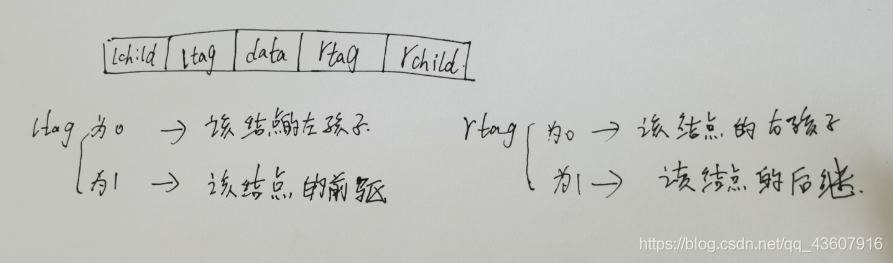 lchild ltag data rtag rchild
ltag 为0 → 该结点的左孩子
为1 → 该结点的前驱
rtag 为0 → 该结点的右孩子
为1 → 该结点的后继.
https://blog.csdn.net/qq_43607916